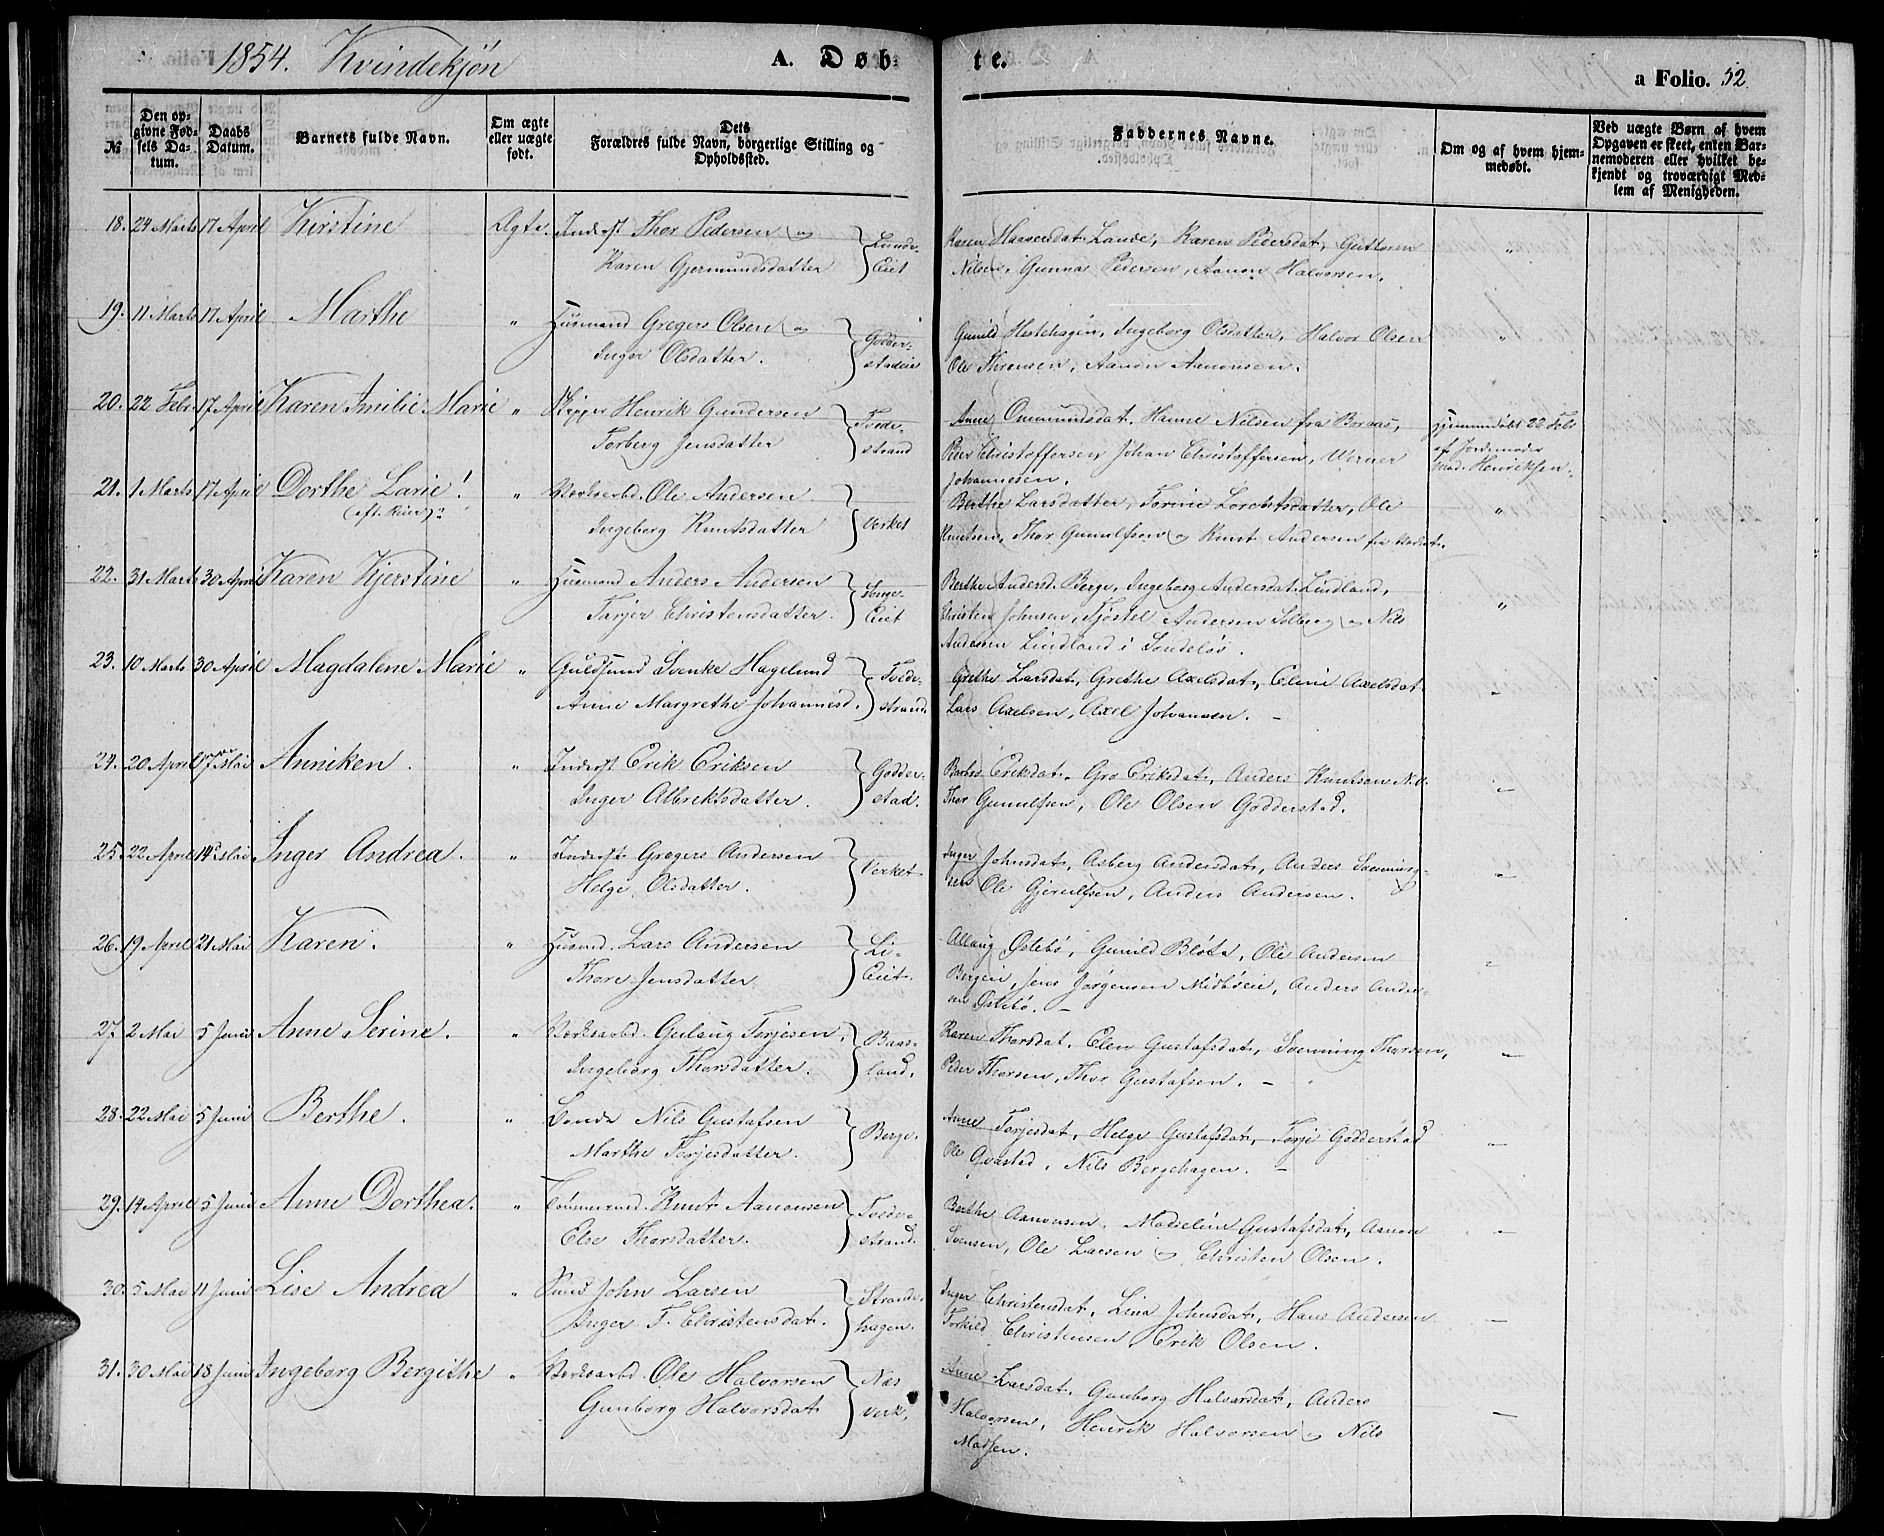 1854. Kvindekjön
A. Døb-
te.
a Folio. 52.
№
Den op-
givne Fød-
sels Da-
tum.
Daabs
Datum.
Barnets fulde Navn.
Om ægte
eller uægte
født.
Dets
Forældres fulde Navn, borgerlige Stilling og
Opholdssted.
Faddernes Navne.
Om og af hvem hjem-
medøbt.
Ved uægte Børn af hvem
Opgaven er skeet, enten Bar-
nemoderen eller hvilket be-
kjendt og troværdigt Med-
lem af Menigheden.
18. 24 Marts 17 April Kirstine Ægte. Inderst Thor Pedersen og
Karen Gjermundsdatter
Lunde-
Eiet
Karen Haaversdat. Lande, Karen Pedersdat, Guttorm
Nilsen, Gunnar Pedersen, Aanon Halvorsen.
"
19. 11 Marts 17 April Marthe " Husmand Gregers Olsen og
Inger Olsdatter.
Godder-
stadeie
Gunild Hestehagen, Ingeborg Olsdatter, Halvor Olsen
Ole Thronsen, Aanon Aanonsen.
"
20. 22 Febr. 17 April Karen Amilie Marie " Skipper Henrik Gundersen
Torberg Jensdatter
Tvede-
strand
Anne Ommundsdat. Hanne Nilsen fra Boraas,
Peder Christoffersen Johan Christoffersen, Werner
Johannesen.
Hjemmedöbt 22 Febr
af Jordemoder
Mad. Henriksen.
21. 1 Marts 17 April Dorthe Larie!
" Verksarbd. Ole Andersen
Ingeborg Knutsdatter
Verket
Berthe Larsdatter, Torine Lorentsdatter, Ole
Knutsen, Thor Gunulfsen og Knut Andersen fra Verket.
"
22. 31 Marts 30 April Karen Kjerstine " Husmand Anders Andersen
Tarjer Christensdatter.
Songe-
Eiet
Berthe Andersd. Berge, Ingeborg Andersdat. Lindland,
Christen Johnsen, Fjöstel Andersen Solberg og Nils
Andersen Lindland i Söndeløv.
"
23. 10 Marts 30 April Magdalene Marie " Guldsmed Svenke Hagelund
Anne Margrethe Johannesd.
Tvede-
strand.
Grethe Larsdat, Grethe Axelsdat, Eline Axelsdat.
Lars Axelsen, Axel Johannsen. –
"
24. 20 April 7 Mai Anniken. " Inderst Erik Eriksen
Inger Albrektsdatter.
Godder-
stad.
Barbro Eriksdat. Gro Eriksdat, Anders Knutsen
Thor Gunulfsen, Ole Olsen Godderstad.
"
25. 22 April 14 Mai Inger Andrea. " Inderst. Gregers Andersen
Helge Olsdatter.
Verket.
Inger Johnsdat, Asberg Andersdat, Anders Svenning-
sen Ole Gjerulfsen, Anders Andersen.
"
26. 19 April 21 Mai Karen. " Husmd. Lars Andersen
Thore Jensdatter
Li-
Eiet.
Allaug Østebö, Gunild Blöta, Ole Andersen
Bergeie, Jens Jörgensen Midtböeie, Anders Ander-
sen Østebö. –
"
27. 2 Mai 5 Juni Anne Serine. " Verksarbd. Gulaug Terjesen,
Ingeborg Thorsdatter.
Baas-
land.
Karen Thorsdat. Elen Gustafsdat, Svenning Thorsen,
Peder Thorsen, Thor Gustafsen. –
"
28. 22 Mai 5 Juni Berthe. " Bonde Nils Gustafsen
Marthe Terjesdatter.
Berge.
Anne Terjesdat, Helge Gustafsdat, Terje Godderstad
Ole Qvastad, Nils Bergehagen. –
"
29. 14 April 5 Juni Anne Dorthea. " Tömmermd. Knut Aanonsen
Else Thorsdatter.
Tvede-
strand.
Berthe Aanonsen. Madseline Gustafsdat, Aanon
Svensen, Ole Larsen og Christen Olsen.
"
30. 5 Mai 11 Juni Lise Andrea " Smed John Larsen
Inger T. Christensdat.
Strande-
hagen.
Inger Christensdat, Lina Johnsdat, Hans Andersen
Torkild Christensen Erik Olsen.
"
31. 30 Mai 18 Juni Ingeborg Bergithe " Verksarbd Ole Halvorsen
Gunborg Halvorsdat
Næs
verk,
Anne Larsdat, Gunborg Halvorsdat, Anders
Halvorsen, Henrik Halvorsen og Nils
Madsen.
"